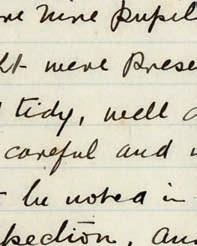 re nine pupil
ht were prese
tidy, well
careful and
be noted in
pection, an